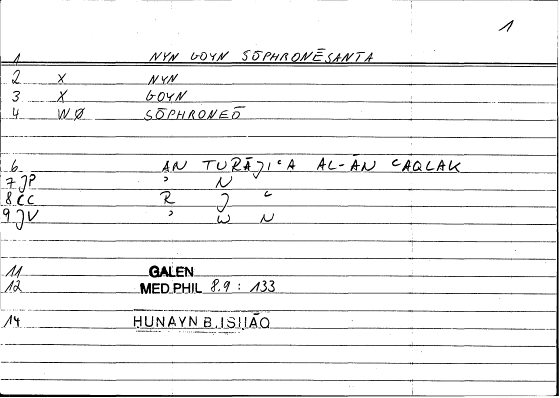 1
1 NYN GOYN SŌPHRONĒSANTA
2 X NYN
3 X GOYN
4 WØ SŌPHRONEŌ
6 AN TURĀJIʿA AL-ĀN ʿAQLAK
7 JP ʾ N
8 CC R J ʿ
9 JV ʾ W N
11 GALEN
12 MED PHIL 8.9 : 133
14 HUNAYN B. ISHĀQ